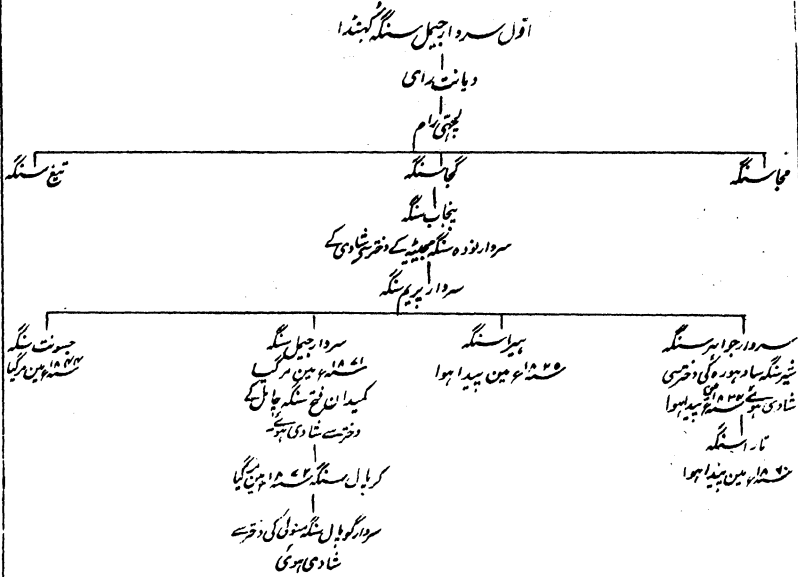 اوّل سردار جیمل سنگہ کہنڈا
دیانت رامی
لچہتی رام
مجا سنگہ
گجا سنگہ
تیغ سنگہ
پنجاب سنگہ
سردار نودہ سنگہ مجیٹیہ کے دختر سی شادی کے
سردار پریم سنگہ
سردار جواہر سنگہ
شیر سنگہ سادہورہ کی دختر سی
شادی ہوئے میں پیدا ہوا
تارا سنگہ
سنہ ۱۸۶۰ء مین پیدا ہوا
ہیرا سنگہ
سنہ ۱۸۲۵ء مین پیدا ہوا
سردار جیمل سنگہ
سنہ ۱۸۷۱ء مین مر گیا
کمیدان فتح سنگہ چاہل کے
دختر سے شادی ہوئے
کرپال سنگہ سنہ ۱۸۷۲ء مین مر گیا
سردار گوپال سنگہ منولی کی دختر سے
شادی ہوئی
جسونت سنگہ
سنہ ۱۸۴۴ء مین مر گیا